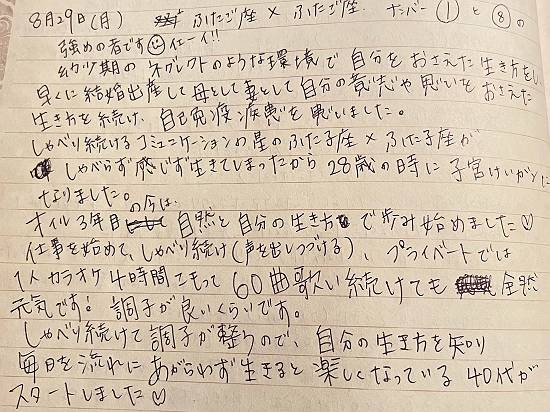 8月29日(月) ふたご座 × ふたご座. ナンバー①と⑧の
強めの者です イェーイ!!
幼少期のネグレクトのような環境で自分をおさえた生き方をし
早くに結婚出産して母として妻として自分の意志や思いをおさえた
生き方を続け、自己免疫疾患を患いました。
しゃべり続けるコミュニケーションの星のふたご座×ふたご座が
しゃべらず感じず生きてしまったから28歳の時に子宮けいがんに
なりました。
オイル3年目の今は、自然と自分の生き方で歩み始めました♡
仕事を始めて、しゃべり続け(声を出しつづける)、プライベートでは
1人カラオケ4時間こもって60曲歌い続けても全然
元気です! 調子が良いくらいです。
しゃべり続けて調子が整うので、自分の生き方を知り
毎日を流れにあがらわず生きると楽しくなっている40代が
スタートしました♡